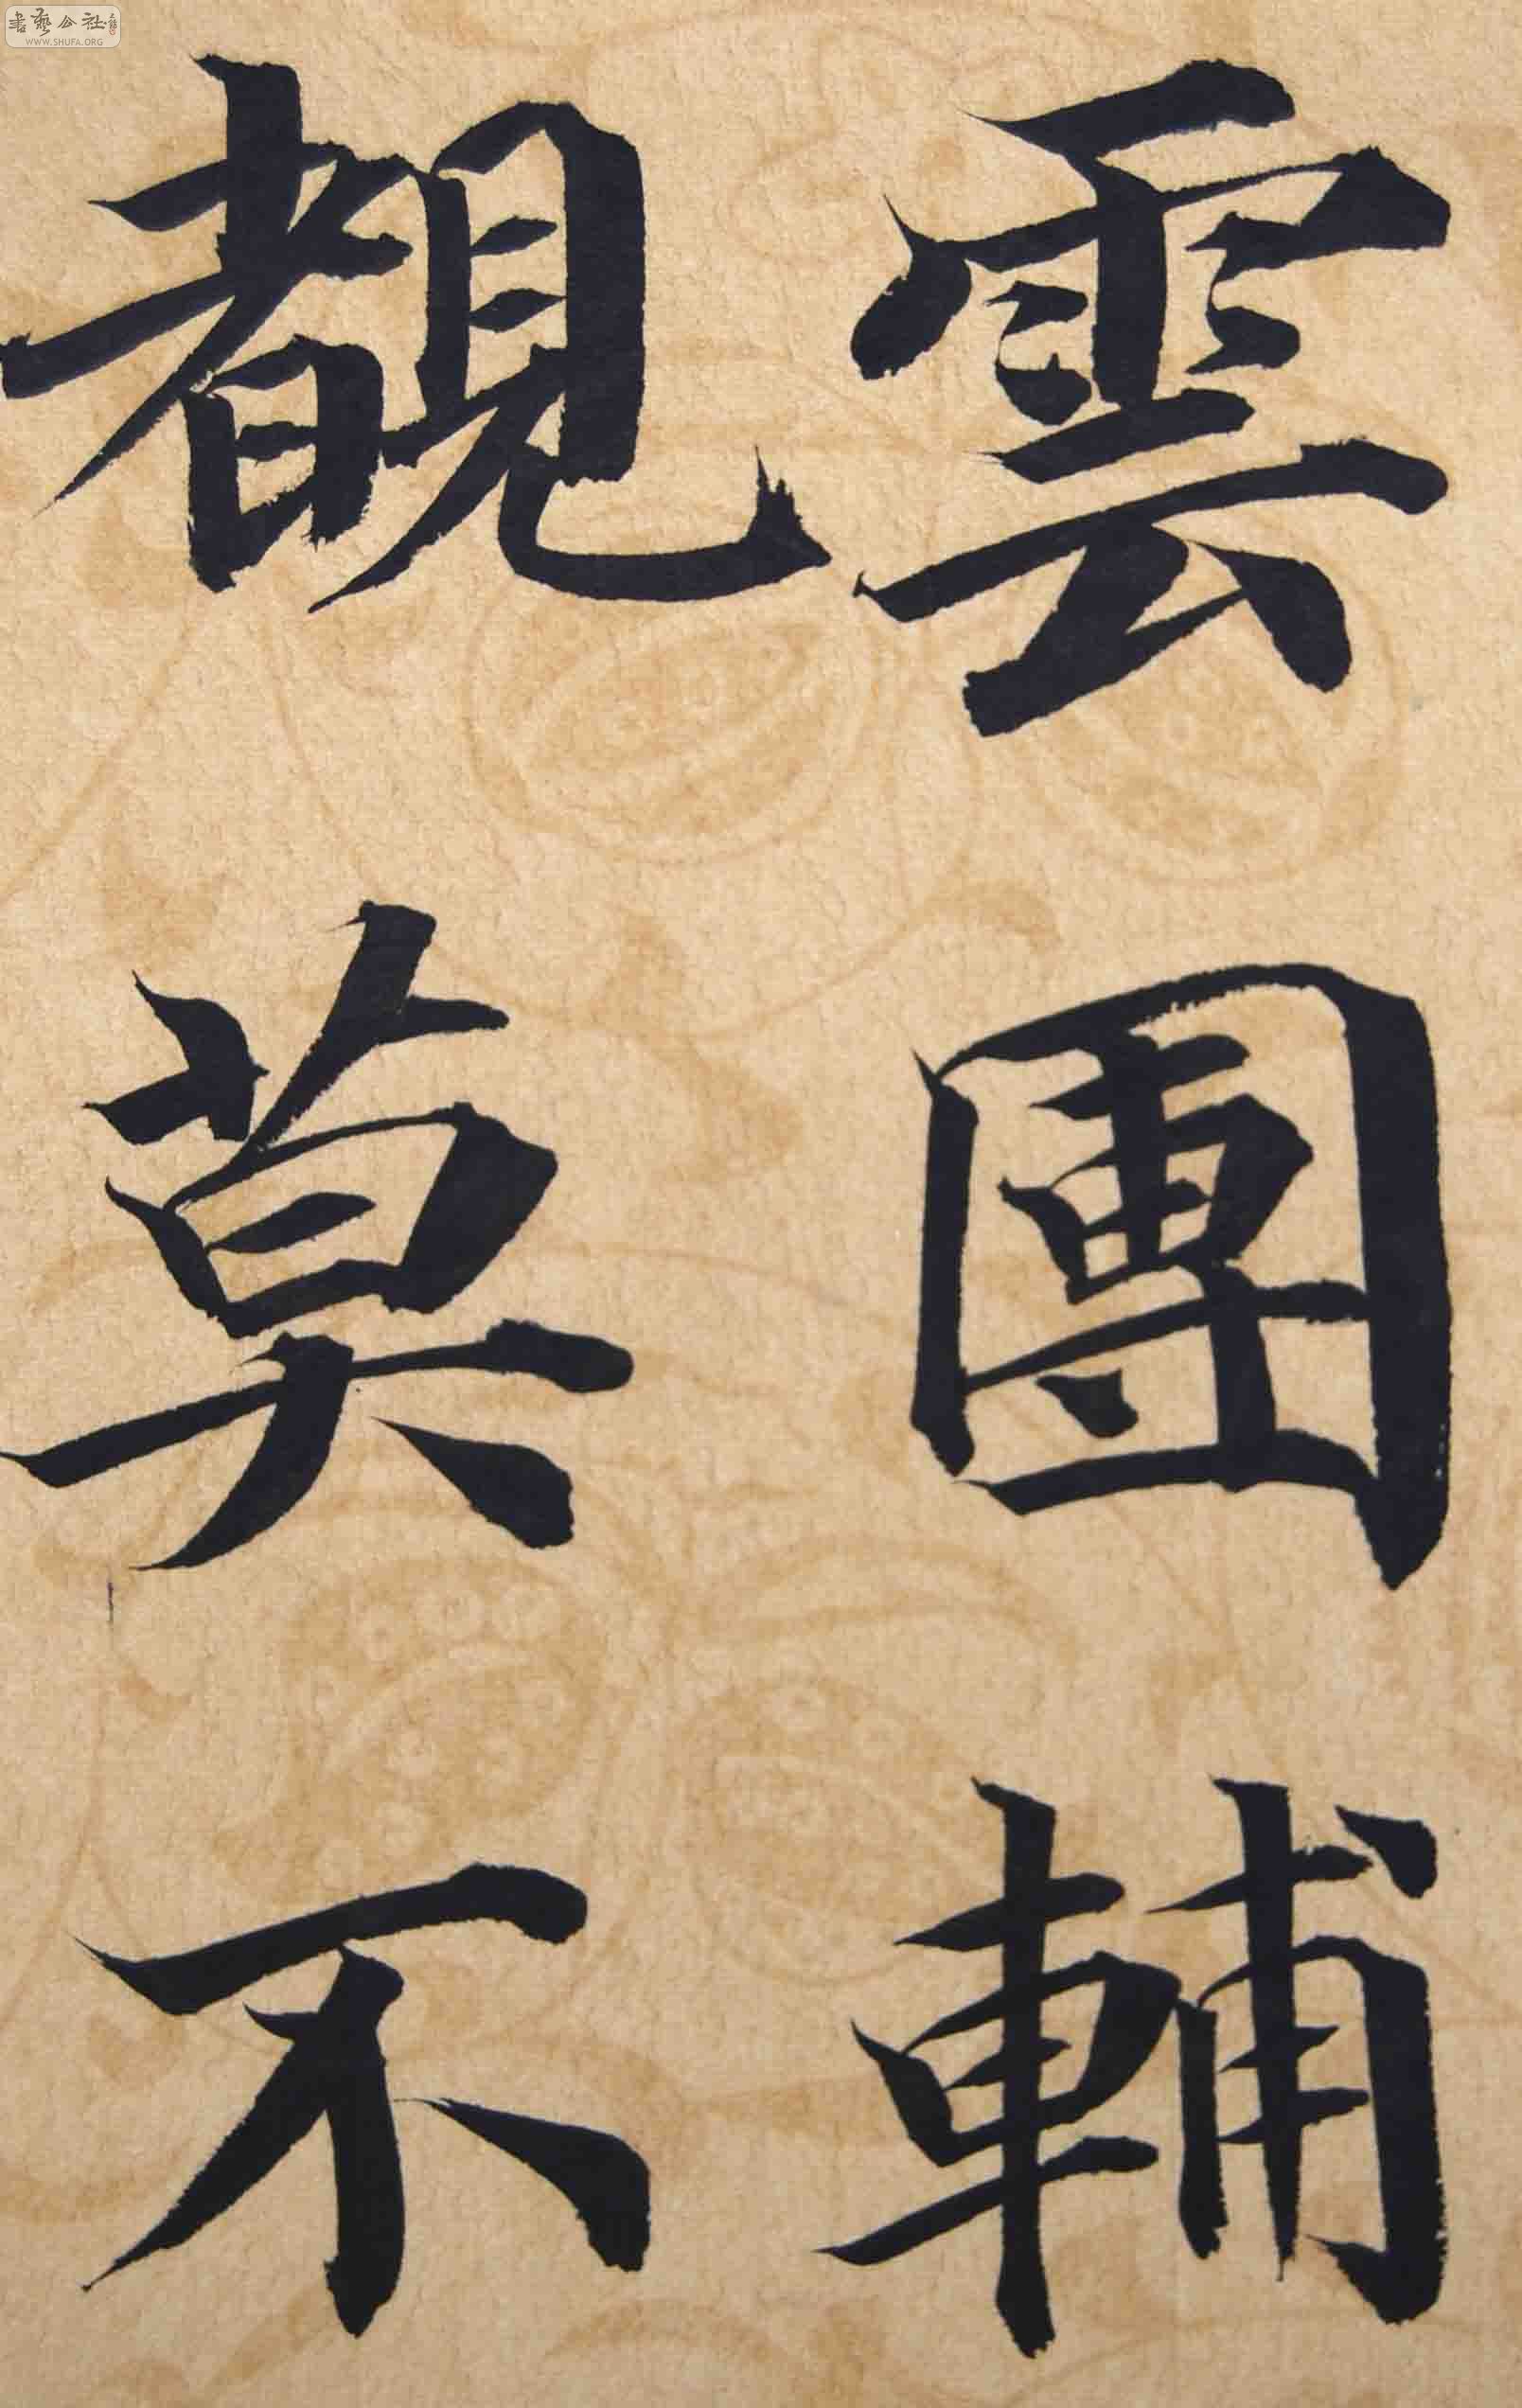 雲團輔
覩莫不
書藝公社
WWW.SHUFA.ORG